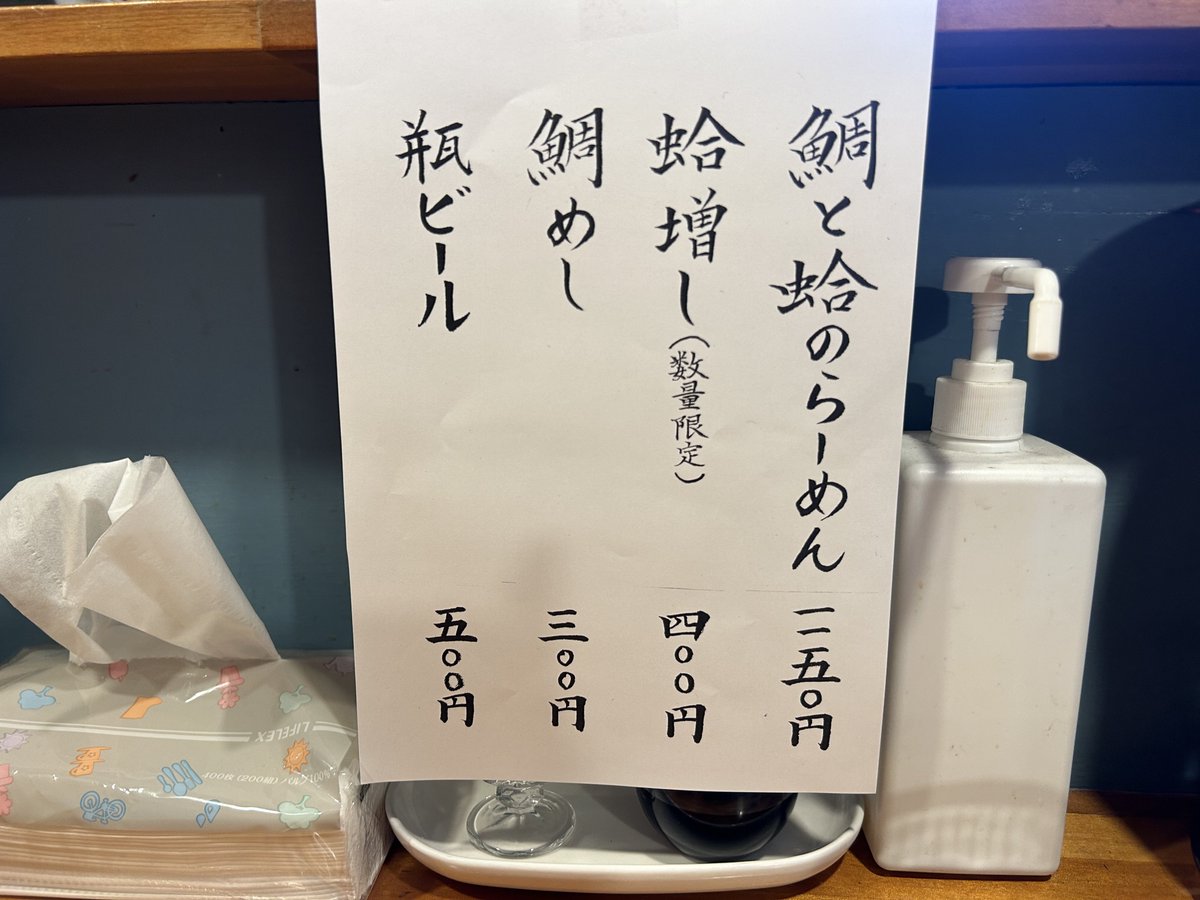 鯛と蛤のらーめん 一一五〇円
蛤増し(数量限定) 四〇〇円
鯛めし 三〇〇円
瓶ビール 五〇〇円
LIFELEX
400枚(200組)パルプ100%